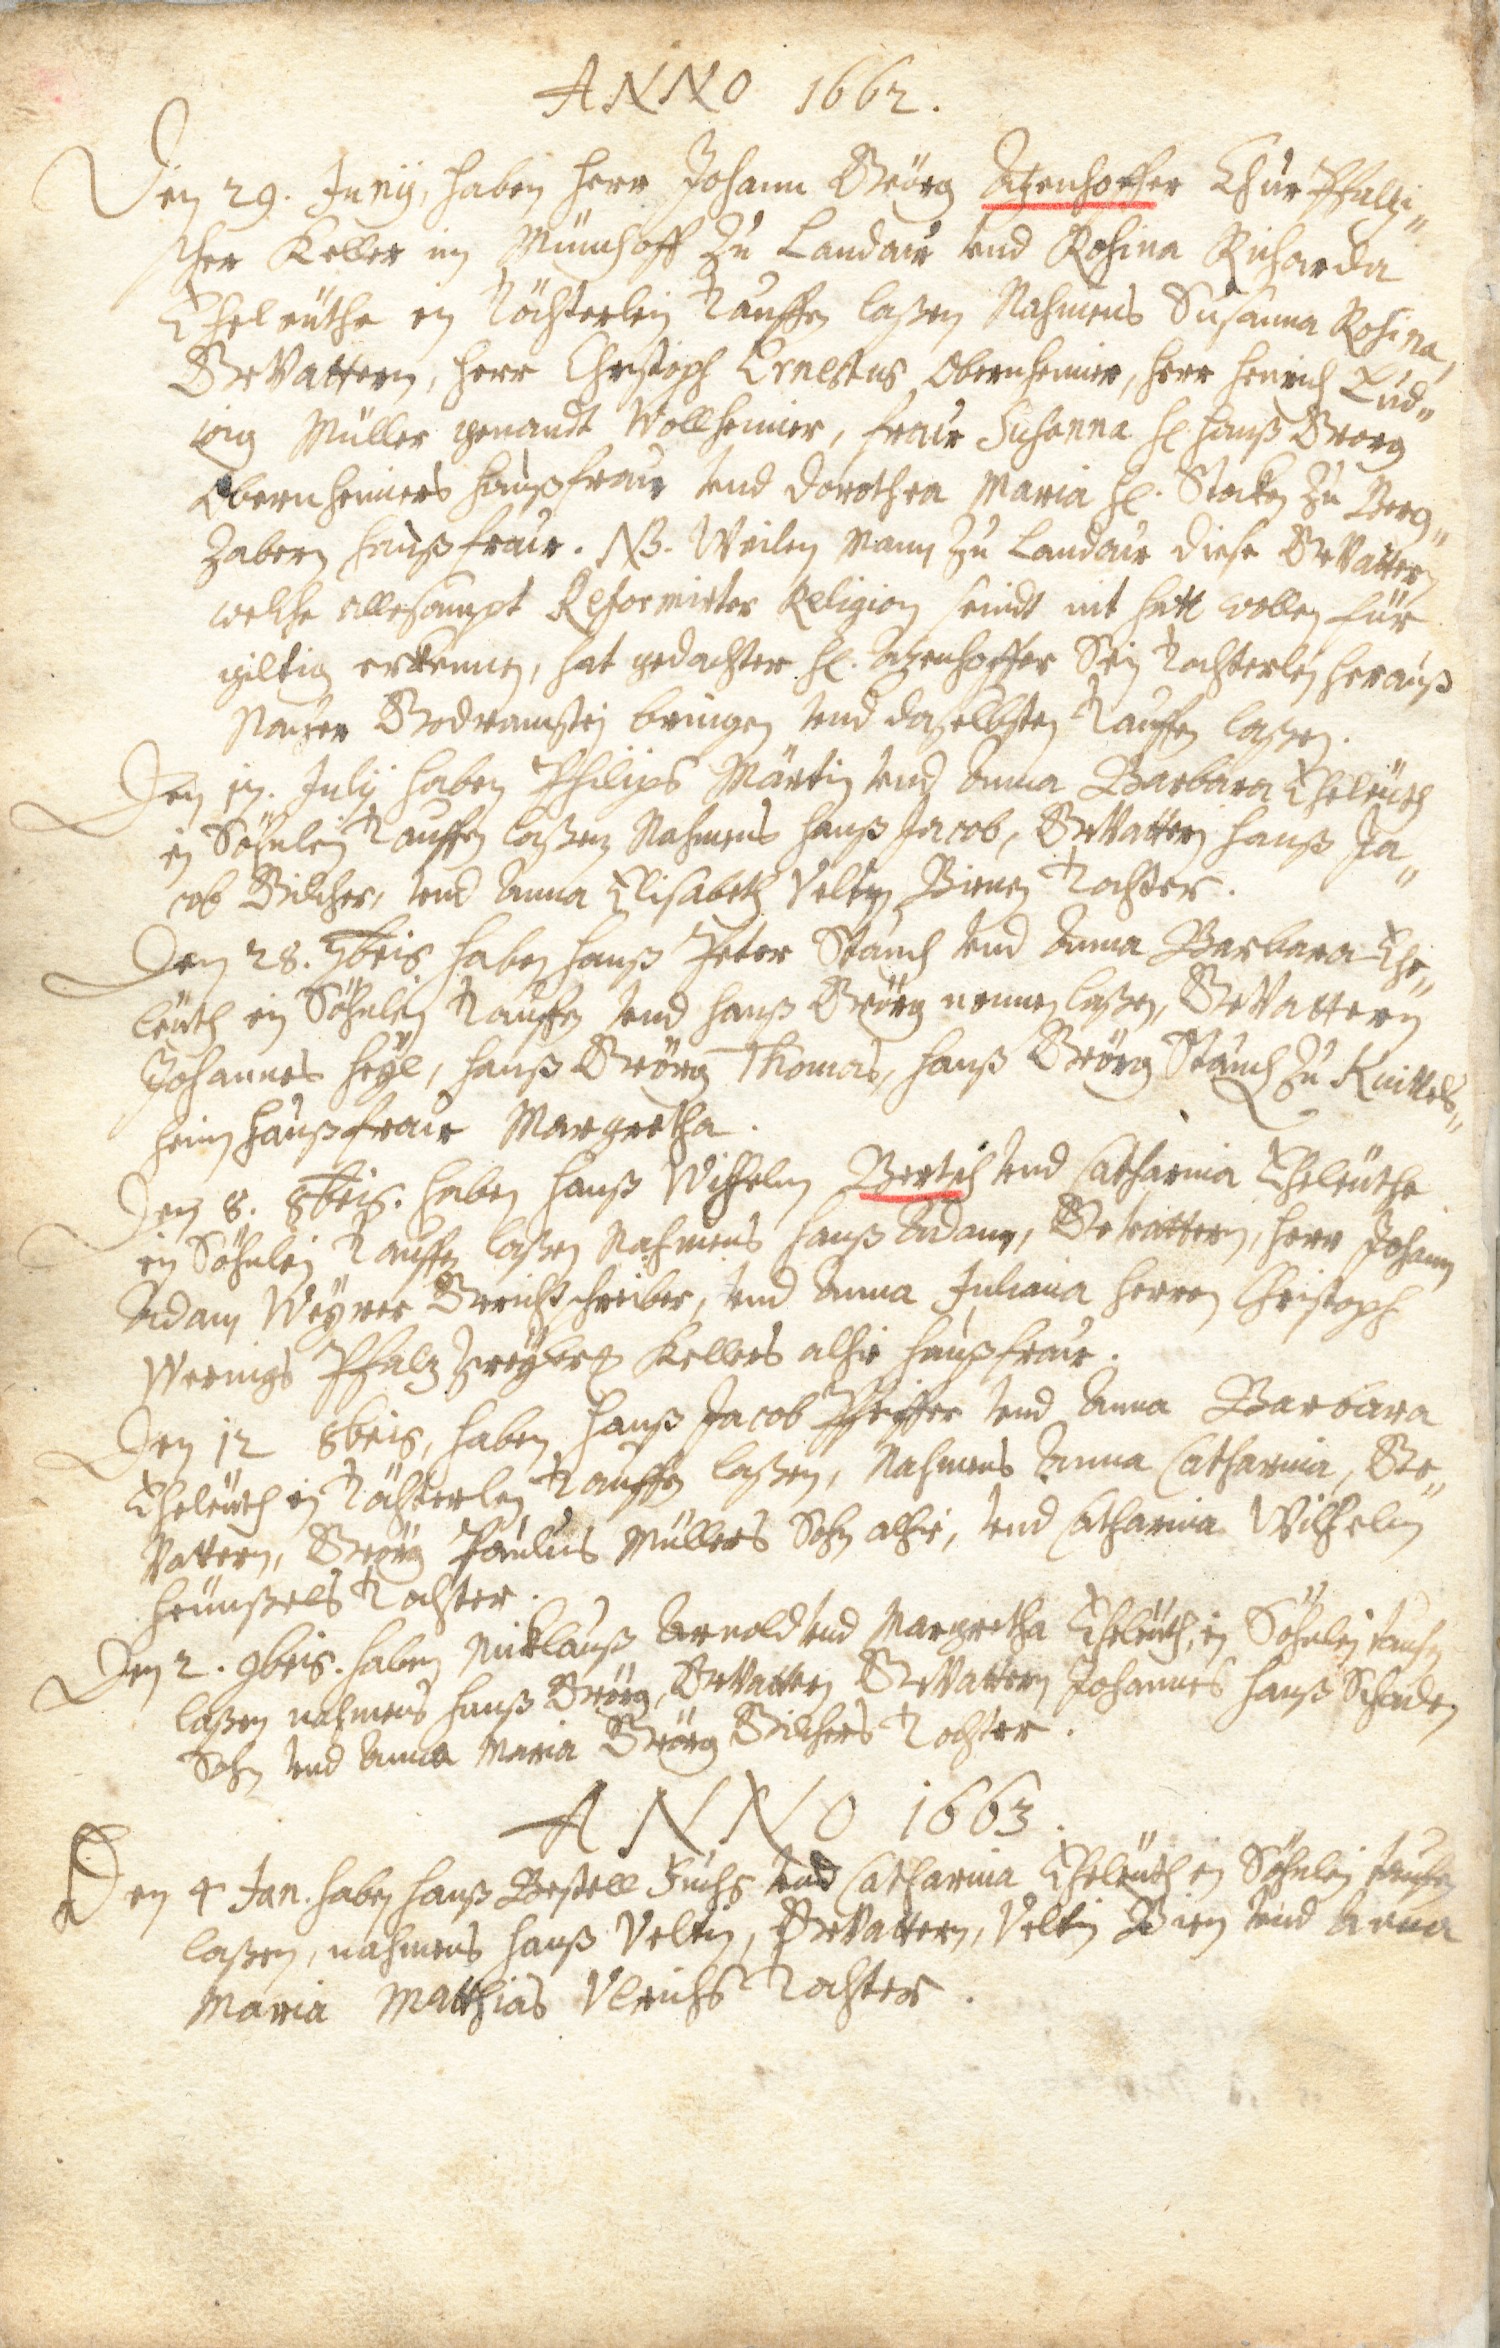 ANNO 1662.
Den 29. Junij, haben herr Johann Geörg Atzenhoffer ChurPfaltzi„
scher Keller im Münchoff zu Landaw und Rosina Richarda
Eheleüthe ein Töchterlein Tauffen laßen Nahmens Susanna Rosina,
GeVattern, herr Christoph Ernestus Obernheimer, herr Henrich Lud„
wig Müller genandt Wollheimer, fraw Susanna H. Hanß Georg
Obernheimers haußfraw und Dorothea Maria H. Stocken zu Berg„
zabern haußfraw. NB. Weilen Mann zu Landaw diese GeVattern
welche allesampt Reformirter Religion seindt nit hatt wollen für
giltig erkennen, hat gedachter H. Atzenhoffer Sein Tochterlein herauß
Nacher Godramstein bringen und daselbsten Tauffen laßen.
Den 17. Julij haben Philips Märtin und Anna Barbara Eheleüth
ein Söhnlein Tauffen laßen Nahmens Hanß Jacob, GeVattern Hanß Ja„
cob Bilcher, und Anna Elisabeth Veltin Bienen Tochter.
Den 28. 7beis haben Hanß Peter Stauch und Anna Barbara Ehe„
leüth ein Söhnlein Tauffen und Hanß Geörg nennen laßen, GeVattern
Johannes Heyl, Hanß Geörg Thomas, Hanß Geörg Stauch zu Knittels„
heim haußfraw Margretha.
Den 8. 8beis. haben Hanß Wilhelm Bertsch und Catharina Eheleüthe
ein Söhnlein Tauffen laßen Nahmens Hanß Adam, Gevattern, herr Johann
Adam Weyrer Grichtschreiber, und Anna Juliana Herren Christoph
Wernigs Pfaltz Kellers alhie haußfraw.
Den 12 8beis, haben Hanß Jacob Pfeiffer und Anna Barbara
Eheleüth ein Töchterlein Tauffen laßen, Nahmens Anna Catharina, Ge„
Vattern, Geörg Paulus Müllers Sohn alhie, und Catharina Wilhelm
Heünßels Tochter.
Den 2. 9beis. haben Nicklauß Arnold und Margretha Eheleüth, ein Söhnlein tauffen
laßen nahmens Hanß Geörg, GeVattern GeVattern Johannes Hanß Schaden
Sohn und Anna Maria Geörg Bilchers Tochter.
ANNO 1663.
Den 4 Jan. haben Hanß Bestell Fuchs und Catharina Eheleüth ein Söhnlein tauffen
laßen, nahmens Hanß Veltin, GeVattern, Veltin Bien und Anna
Maria Matthias Ulrichs Tochter.